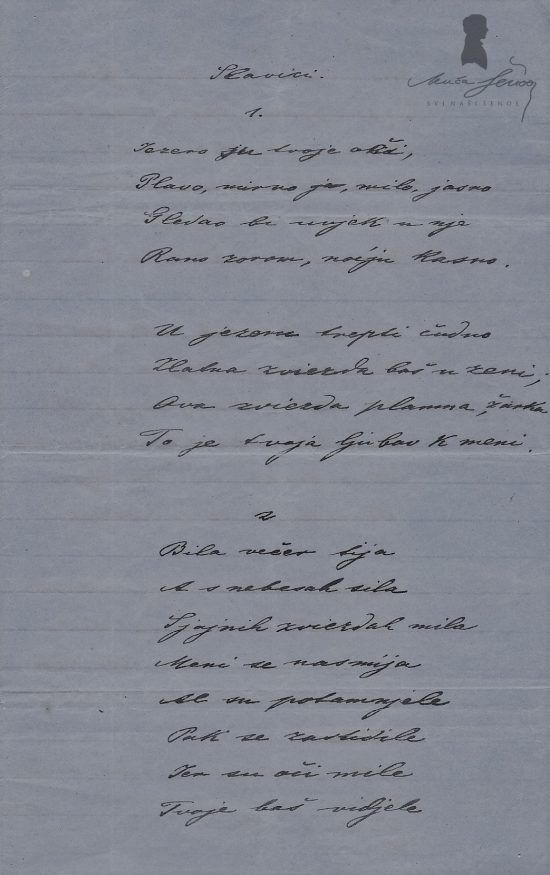 Slavici.
1.
Jezero je tvoje oko,
Plavo, mirno je, milo, jasno
Gledao bi uvjek u nje
Rano zorom, noćju kasno.
U jezeru trepti čudno
Zlatna zviezda baš u zeni,
Ova zviezda plamna, žarka
To je tvoja ljubav k meni.
2
Bila večer sija
A s nebesah sila
Sjajnih zviezdah mila
Meni se nasmija
Al su potamnjele
Pak se zastidile
Jer su oči mile
Tvoje baš vidjele
Kuća Šenoa
SVI NAŠI ŠENOE